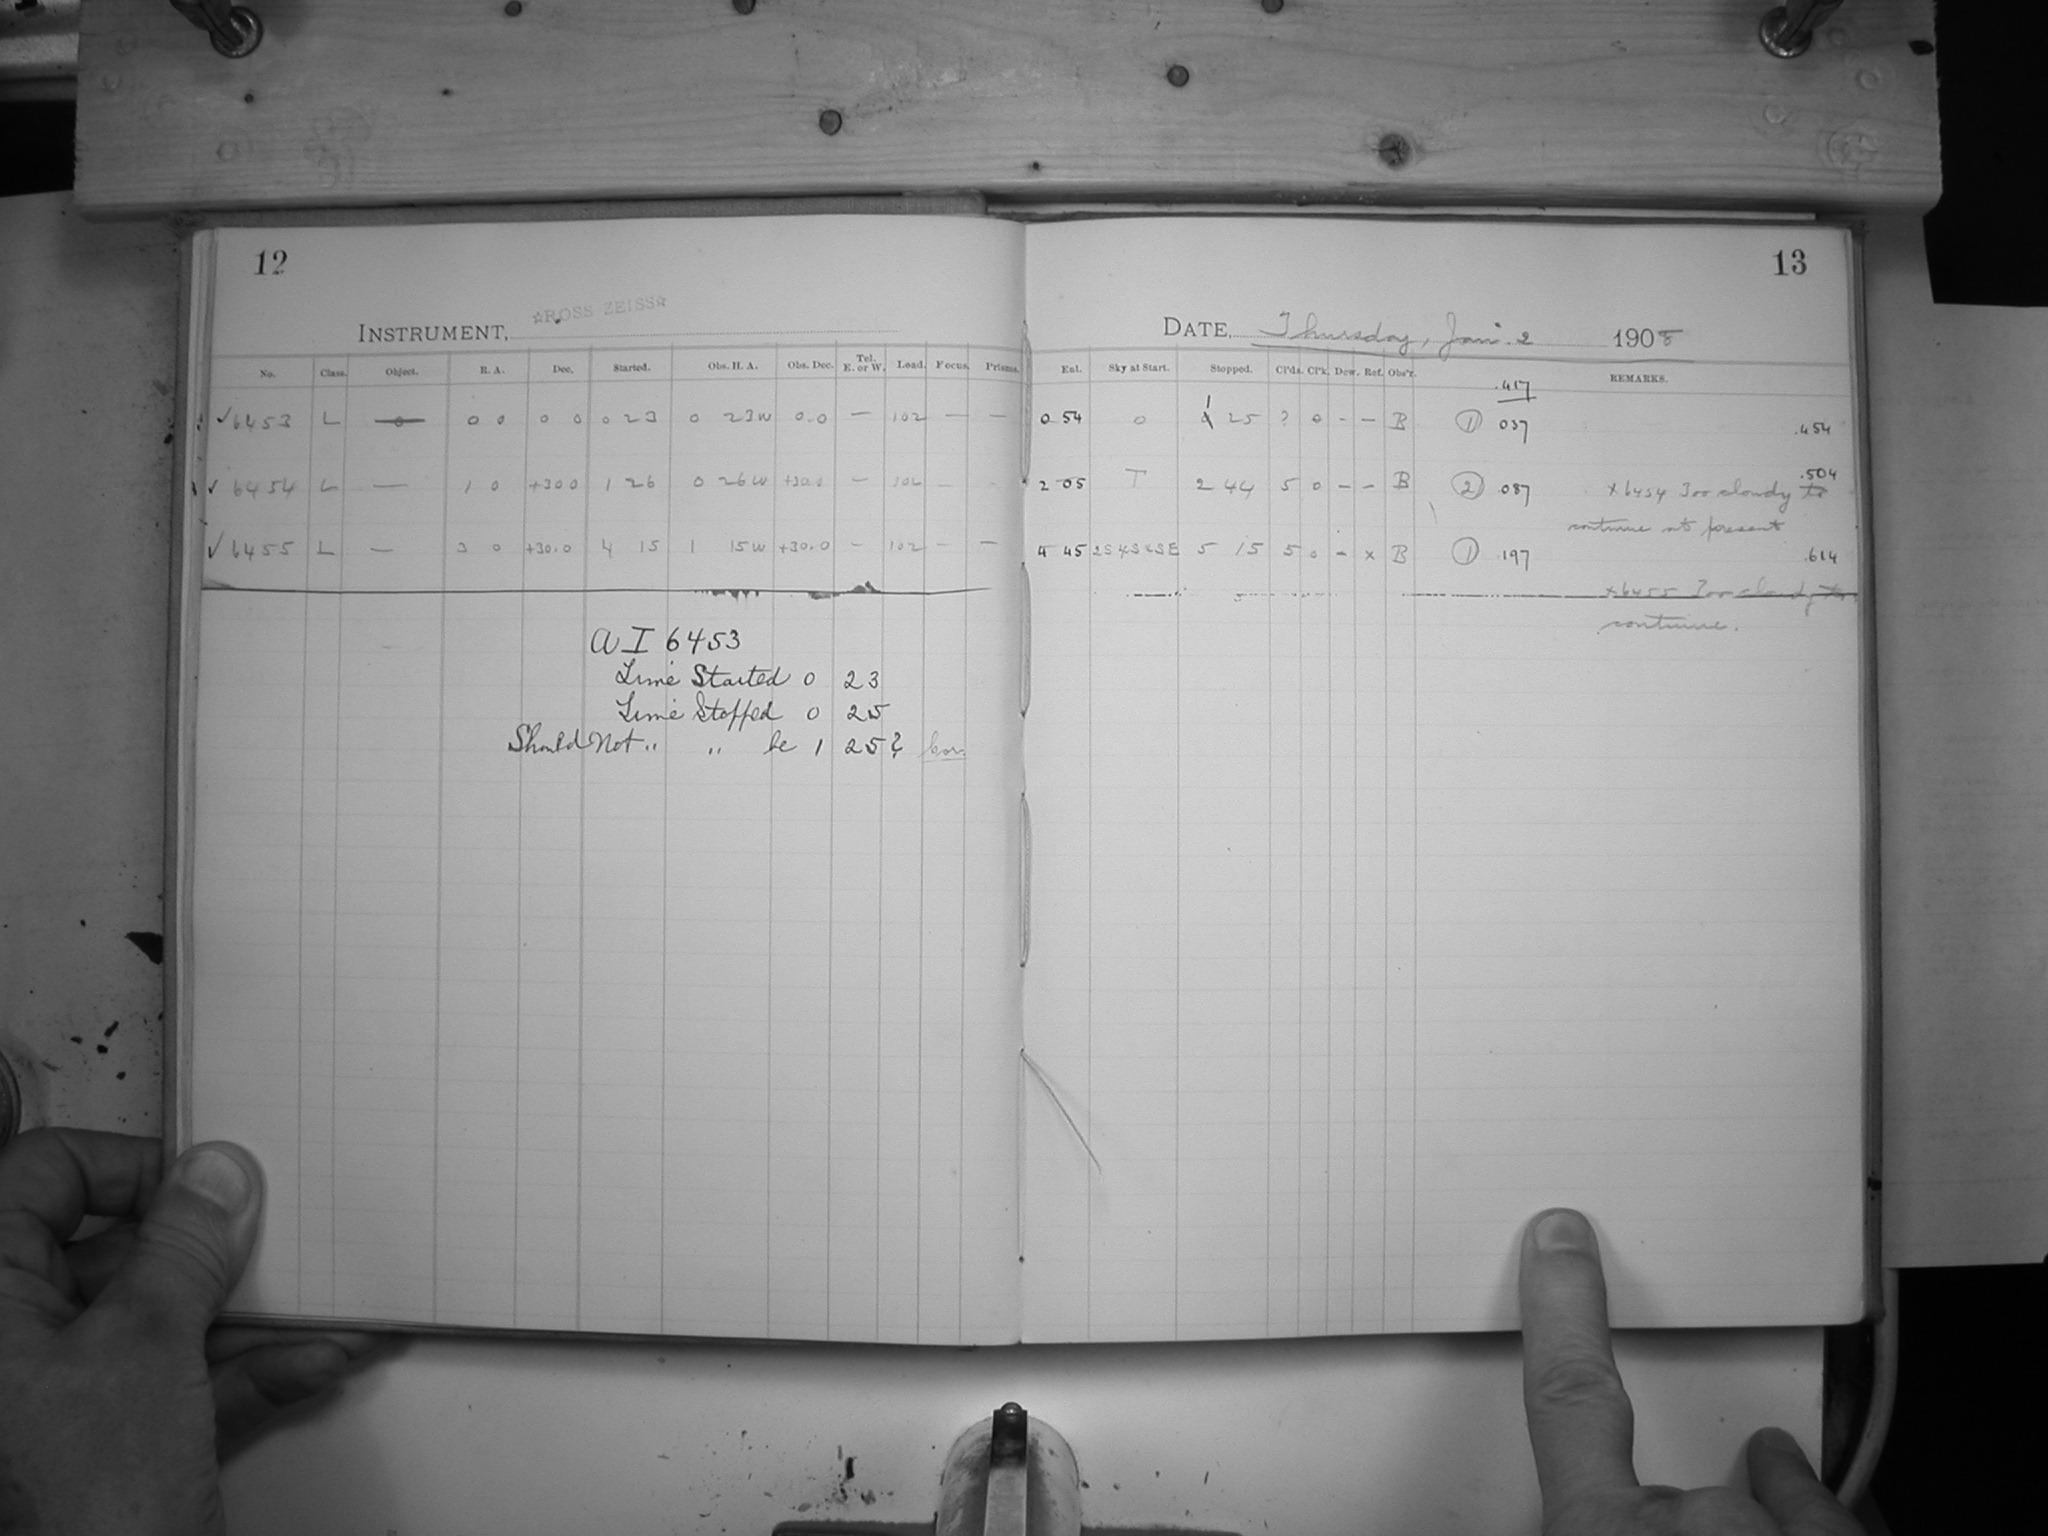 12
☆ROSS ZEISS☆
INSTRUMENT,
No. Class. Object. R. A. Dec. Started. Obs. H. A. Obs. Dec. Tel. E. or W. Load. Focus. Prisms.
✓6453 L — 0 0 0 0 0 23 0 23W 0.0 — 102 — —
✓ 6454 L — 1 0 +30 0 1 26 0 26W +30.0 — 102 — -
✓6455 L — 3 0 +30.0 4 15 1 15W +30.0 — 102 — —
I 6453
Time Started 0 23
Time Stopped 0 25
Should Not " " be 1 25?
13
DATE, Thursday, Jan. 2 1908
Ent. Sky at Start. Stopped. Cl'ds. Cl'k. Dew. Ref. Obs'r. REMARKS.
.417
0 54 0 1 25 ? 0 - — B ① 037 .454
.504
2 05 T 2 44 5 0 - — B ② .087 x6454 Too cloudy to
continue at present
4 45 2S4S&SE 5 15 5 0 - x B ① .197 .614
x6455 Too cloudy to
continue.